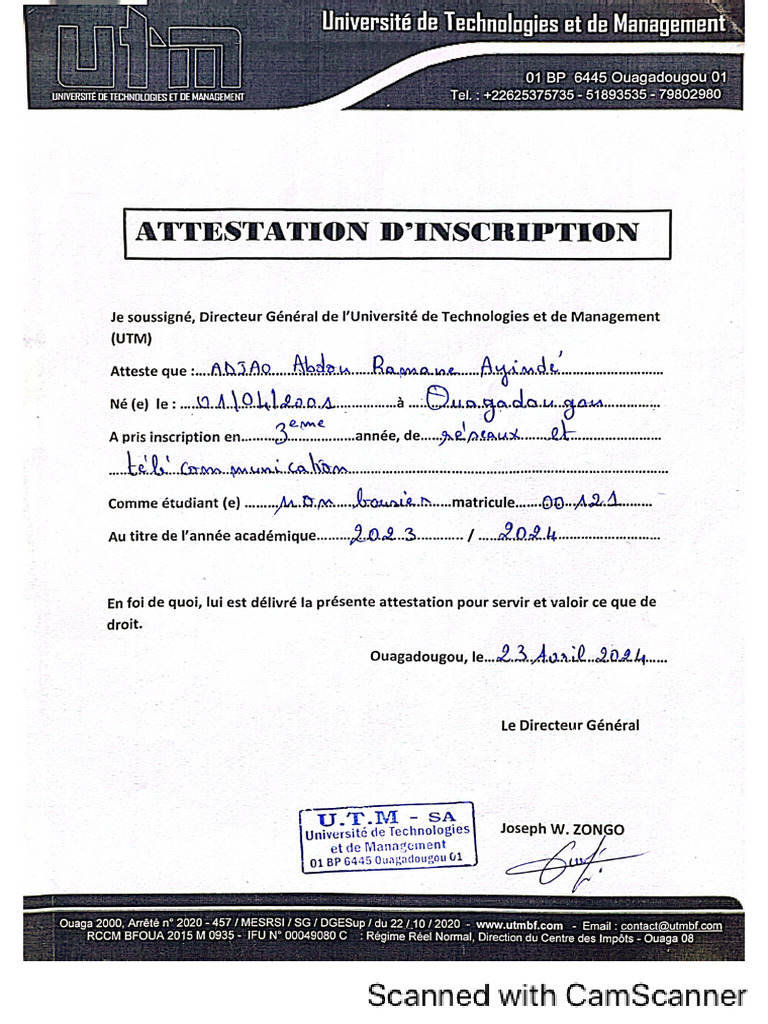 utm
UNIVERSITÉ DE TECHNOLOGIES ET DE MANAGEMENT
Université de Technologies et de Management
01 BP 6445 Ouagadougou 01
Tel. : +22625375735 - 51893535 - 79802980
ATTESTATION D'INSCRIPTION
Je soussigné, Directeur Général de l'Université de Technologies et de Management
(UTM)
Atteste que :....ADJAO Abdou Ramane Ayindé
Né (e) le : ...01/04/2001...à ...Ouagadougou
A pris inscription en...3eme...année, de...réseaux et
télécommunication
Comme étudiant (e) ...non boursier...matricule...00121
Au titre de l'année académique...2023.../...2024
En foi de quoi, lui est délivré la présente attestation pour servir et valoir ce que de
droit.
Ouagadougou, le...23 Avril 2024
Le Directeur Général
U.T.M - SA
Université de Technologies
et de Management
01 BP 6445 Ouagadougou 01
Joseph W. ZONGO
Ouaga 2000, Arrêté n° 2020 - 457 / MESRSI / SG / DGESup / du 22 / 10 / 2020 - www.utmbf.com - Email : contact@utmbf.com
RCCM BFOUA 2015 M 0935 - IFU N° 00049080 C : Régime Réel Normal, Direction du Centre des Impôts - Ouaga 08
Scanned with CamScanner